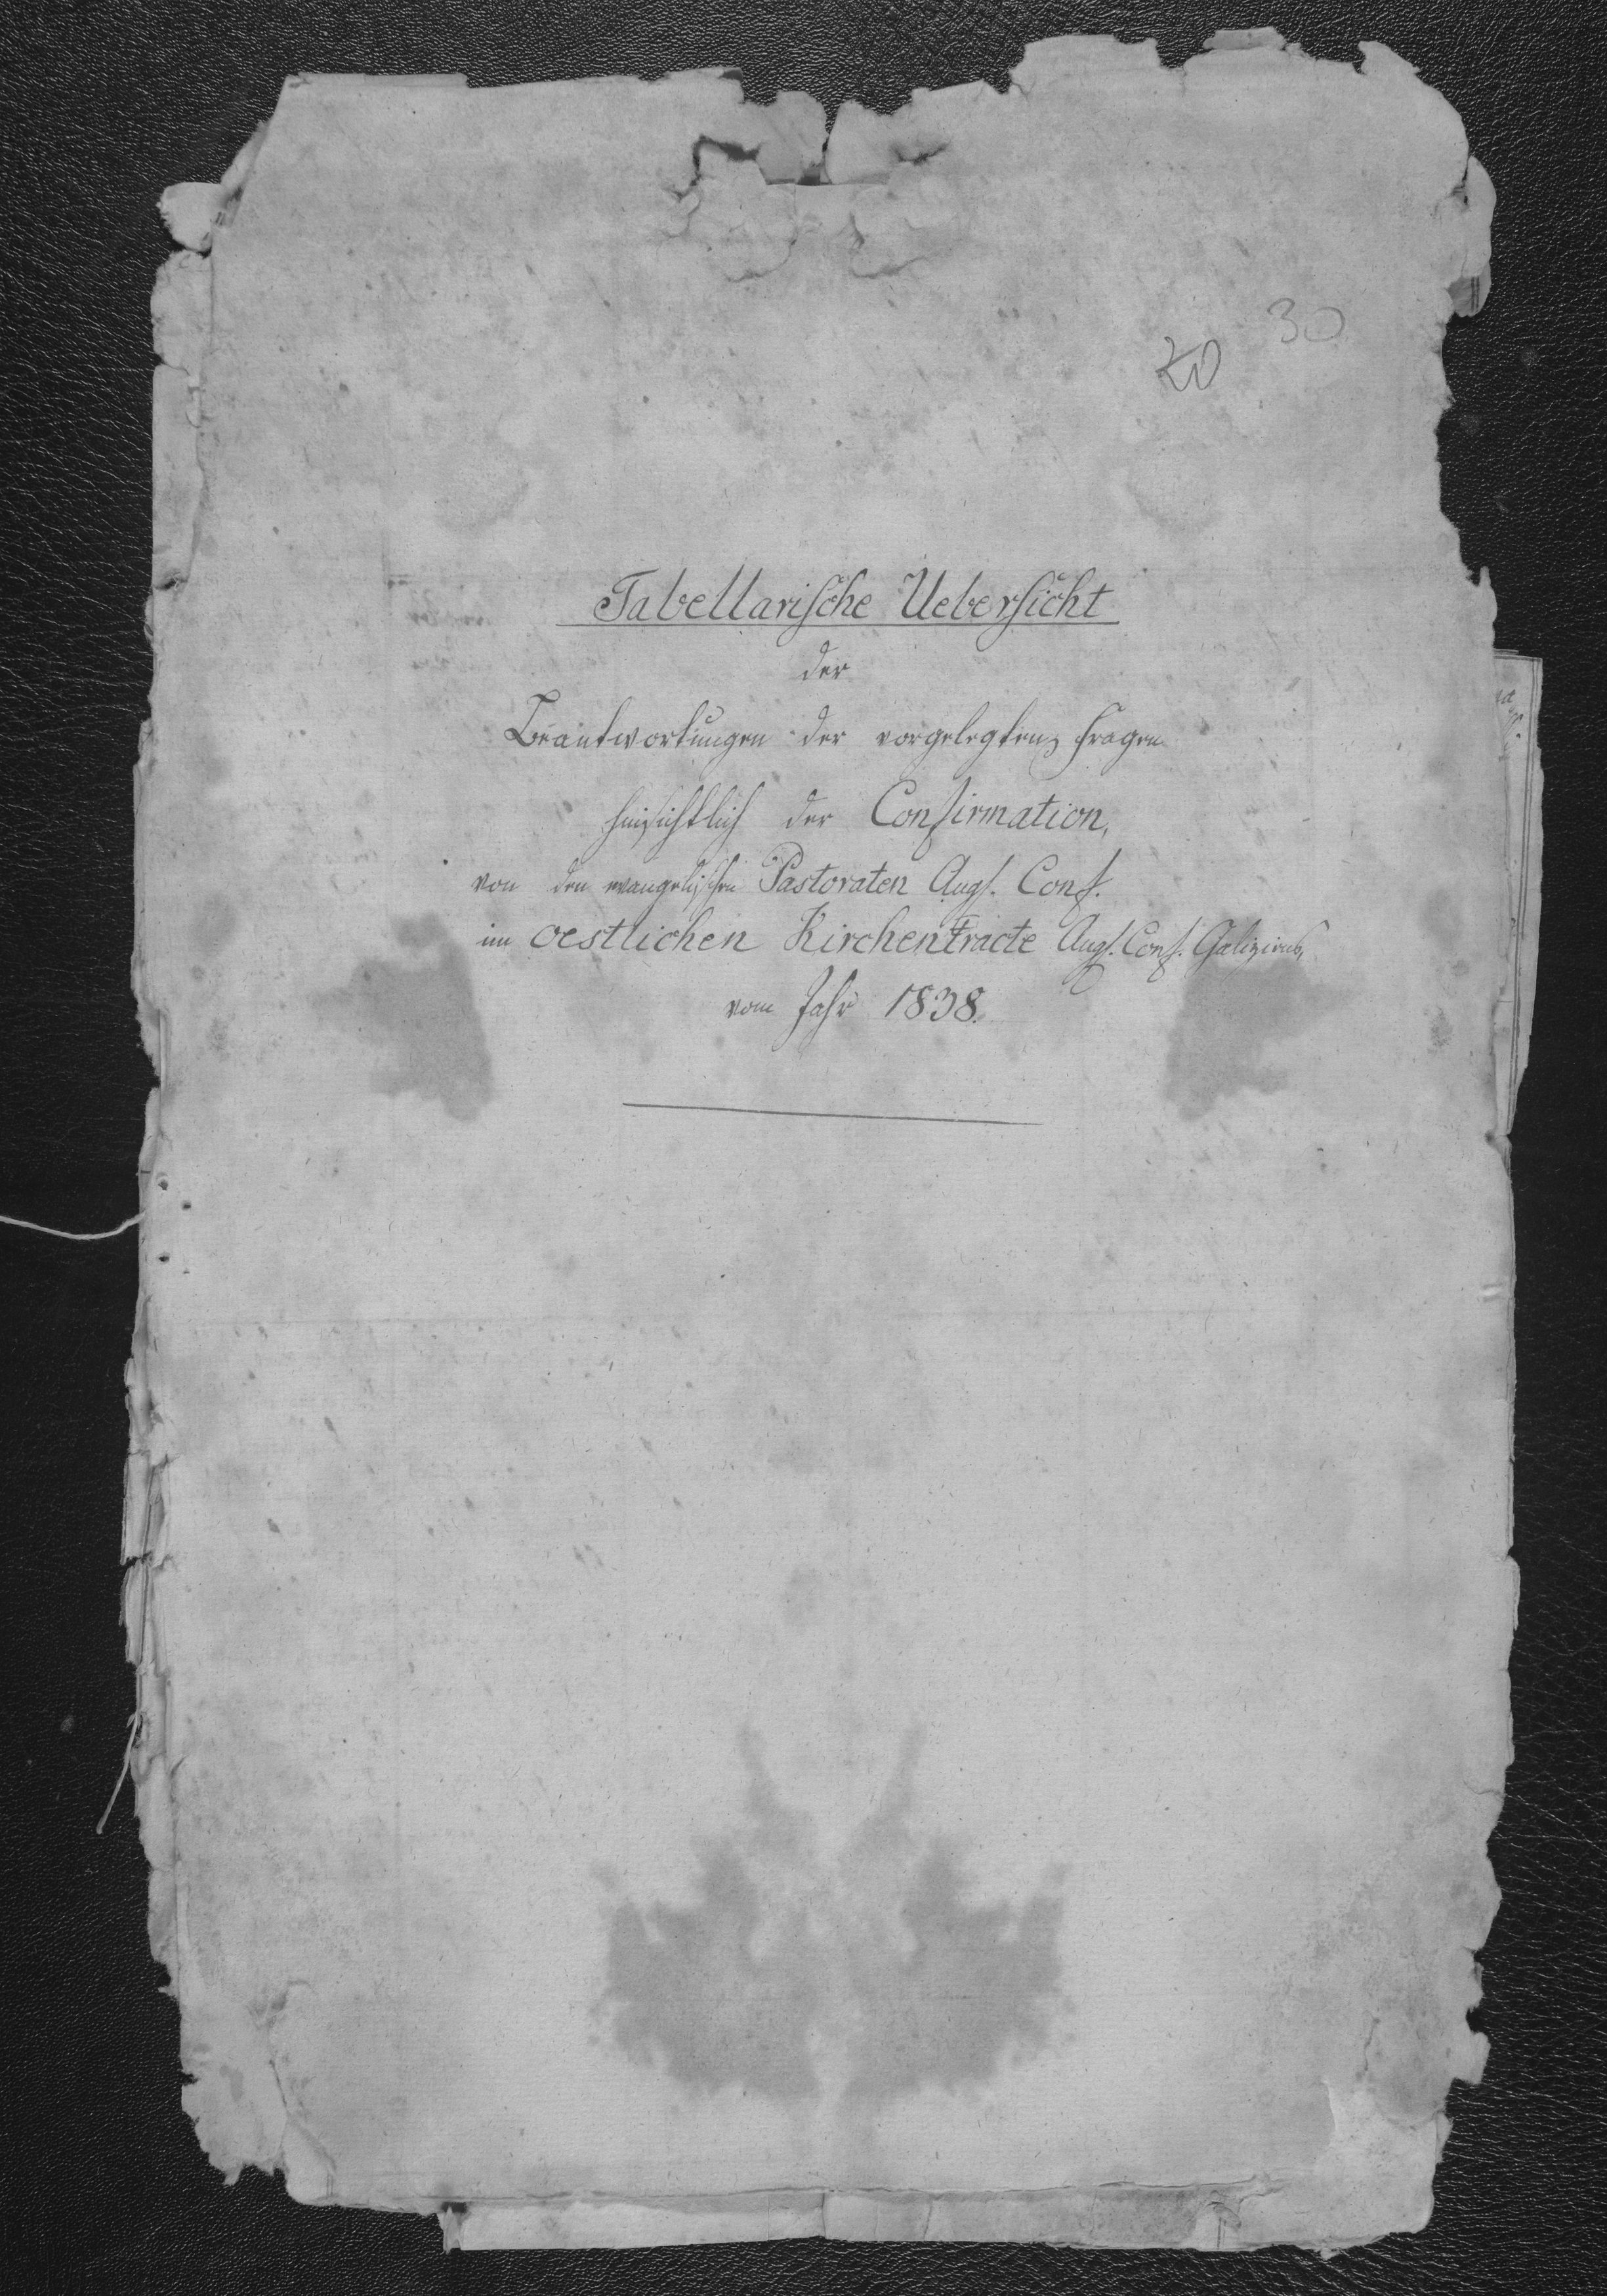 30
20
Tabellarische Uebersicht
der
Beantwortungen der vorgelegten Fragen
hinsichtlich der Confirmation,
von den evangelischen Pastoraten Augs. Conf.
im oestlichen Kirchentracte Augs. Conf. Galiziens,
vom Jahr 1838.